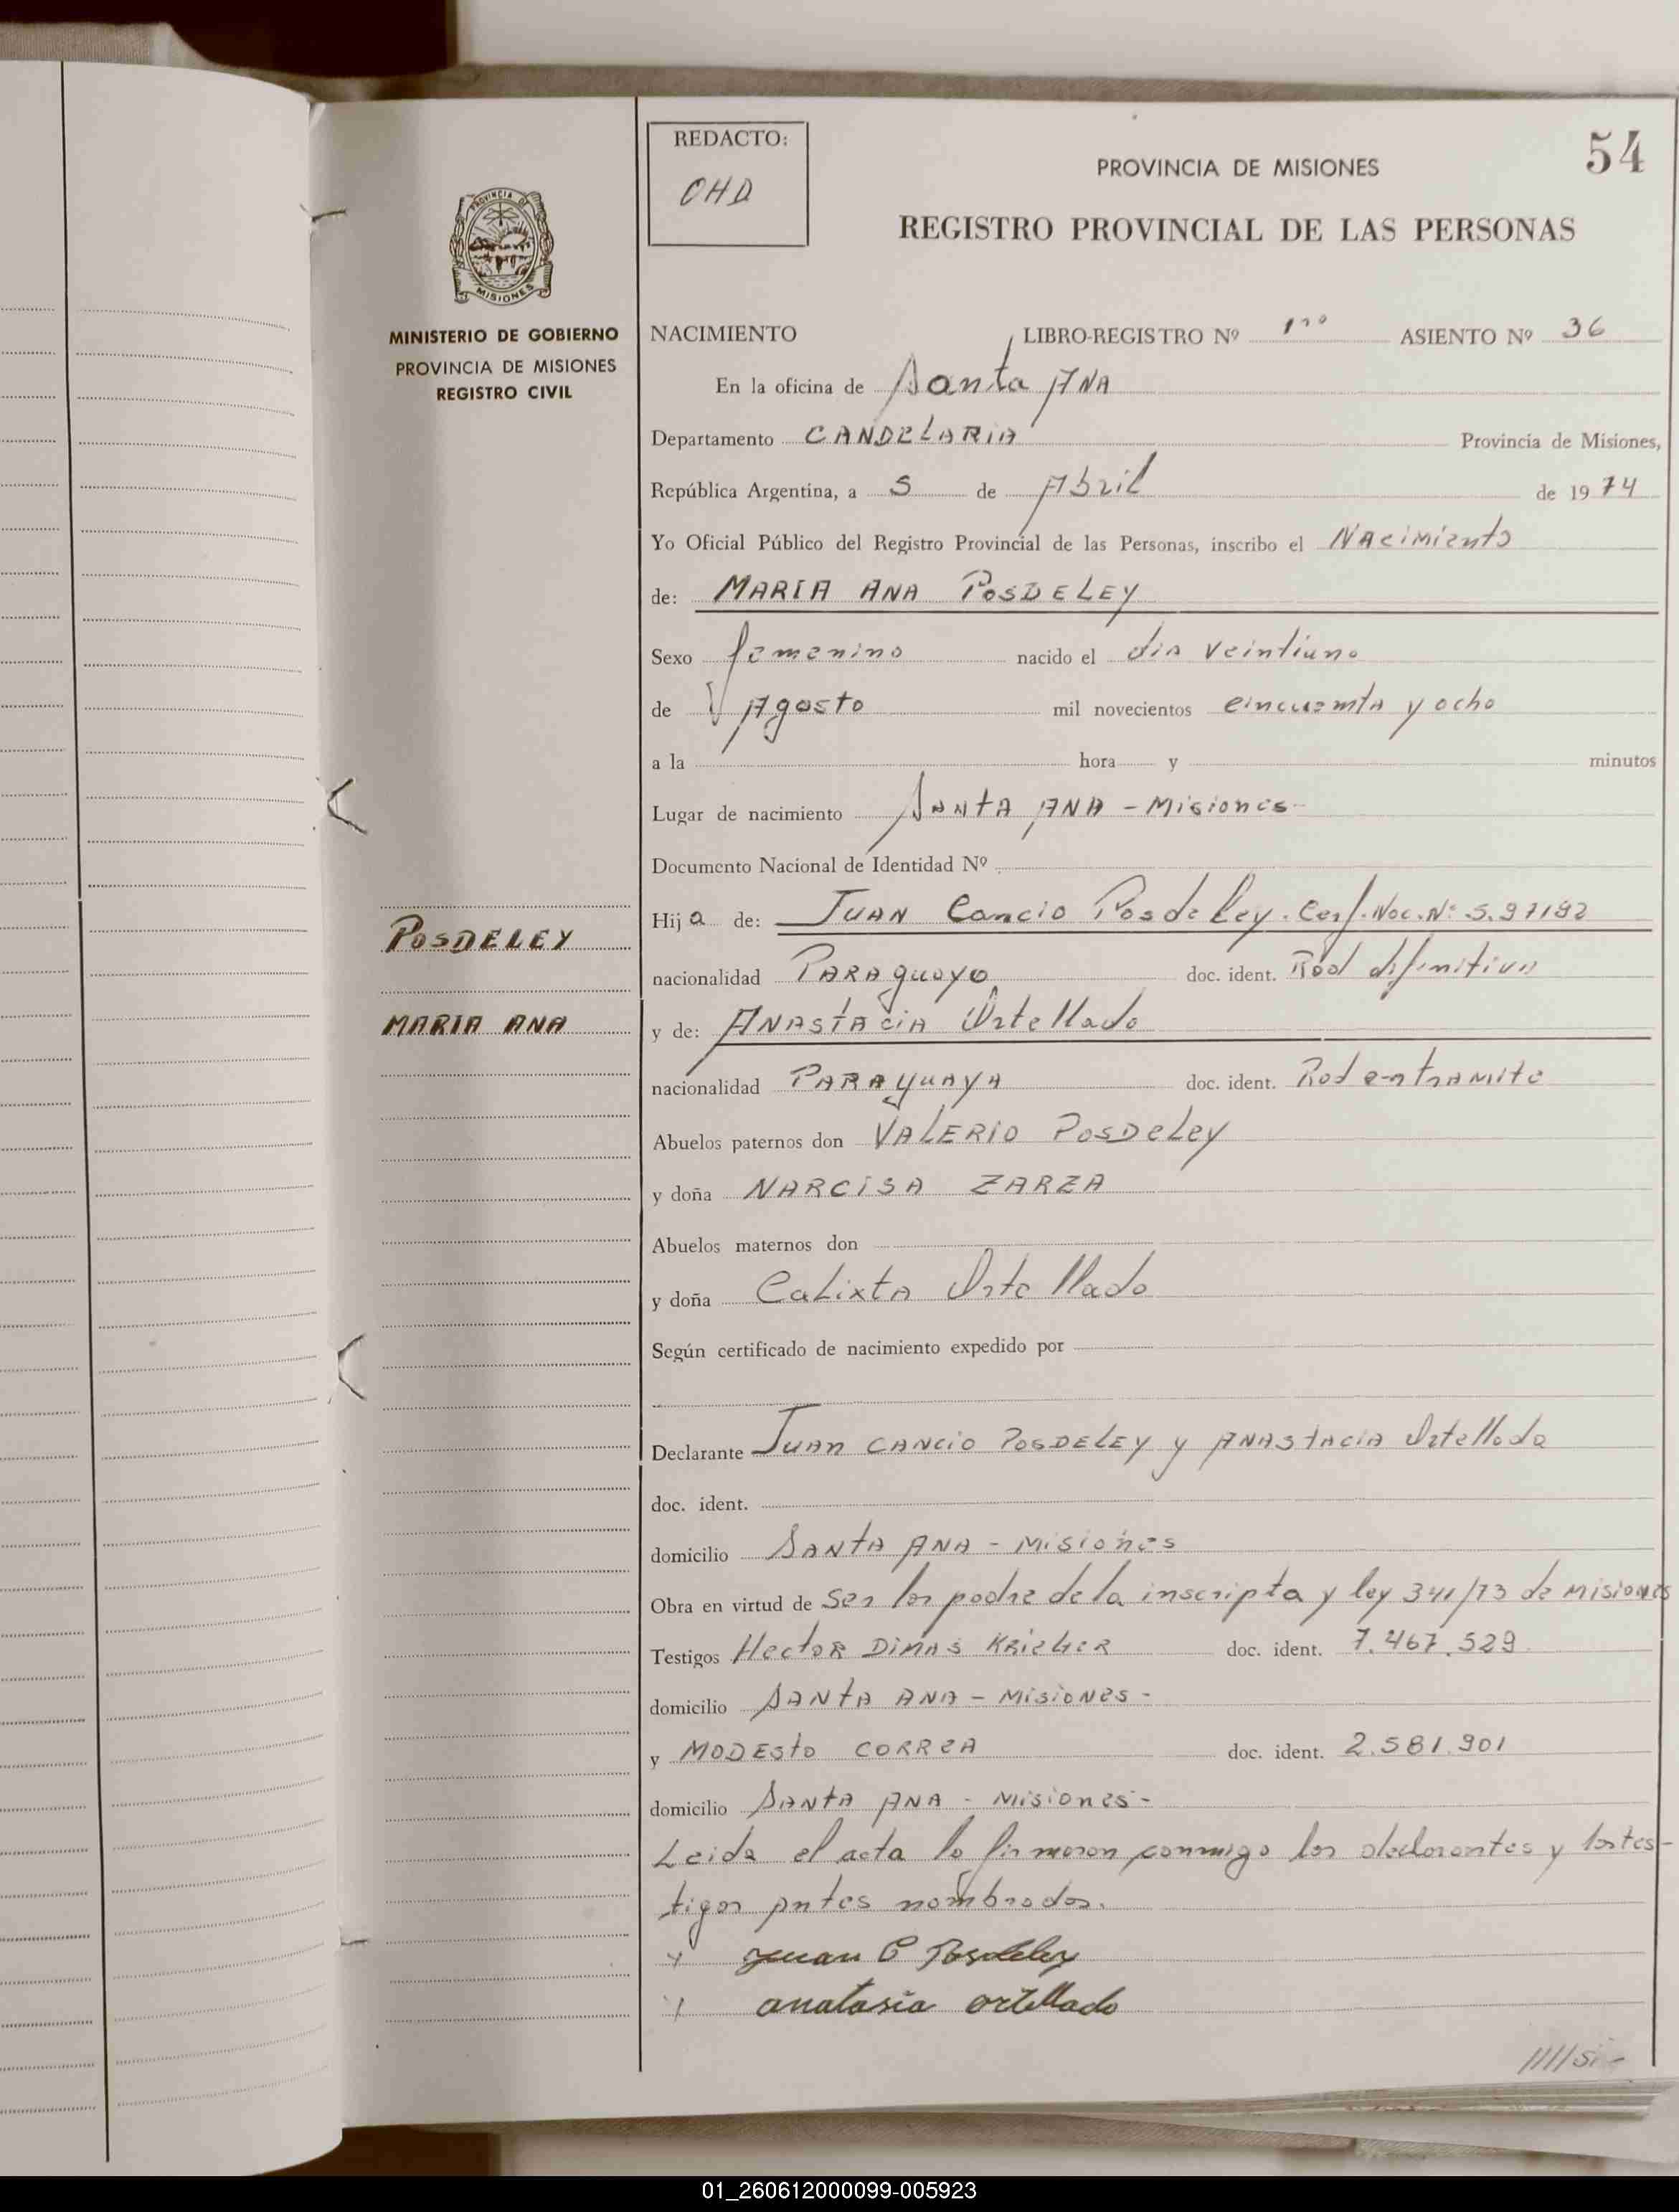 54
REDACTO:
OHD
PROVINCIA DE MISIONES
REGISTRO PROVINCIAL DE LAS PERSONAS
PROVINCIA DE
MISIONES
MINISTERIO DE GOBIERNO
PROVINCIA DE MISIONES
REGISTRO CIVIL
NACIMIENTO LIBRO-REGISTRO Nº 1ro ASIENTO Nº 36
En la oficina de Santa ANA
Departamento CANDELARIA Provincia de Misiones,
República Argentina, a 5 de Abril de 1974
Yo Oficial Público del Registro Provincial de las Personas, inscribo el Nacimiento
de: MARIA ANA POSDELEY
Sexo femenino nacido el dia veintiuno
de Agosto mil novecientos cincuenta y ocho
a la hora y minutos
Lugar de nacimiento SANTA ANA - Misiones-
Documento Nacional de Identidad Nº
Hija de: JUAN Cancio Posdeley. Cert. Nac. Nº 5.97192
nacionalidad PARAguayo doc. ident. Rad definitiva
POSDELEY
MARIA ANA
y de: ANASTAciA Ortellado
nacionalidad PARAguayA doc. ident. Rad en tramite
Abuelos paternos don VALERIO POSDELEY
y doña NARCISA ZARZA
Abuelos maternos don
y doña Calixta Ortellado
Según certificado de nacimiento expedido por
Declarante Juan CANCIO POSDELEY y ANASTACIA Ortellado
doc. ident.
domicilio SANTA ANA - Misiones
Obra en virtud de ser los padre de la inscripta y ley 341/73 de Misiones
Testigos Hector DIMAS KRIEGER doc. ident. 7.467.529
domicilio SANTA ANA - Misiones -
y MODESTO CORREA doc. ident. 2.581.901
domicilio SANTA ANA - Misiones -
Leida el acta la firmaron conmigo los declarantes y los tes-
tigos antes nombrados.
Juan C Posdeley
anatasia ortellado
01_260612000099-005923